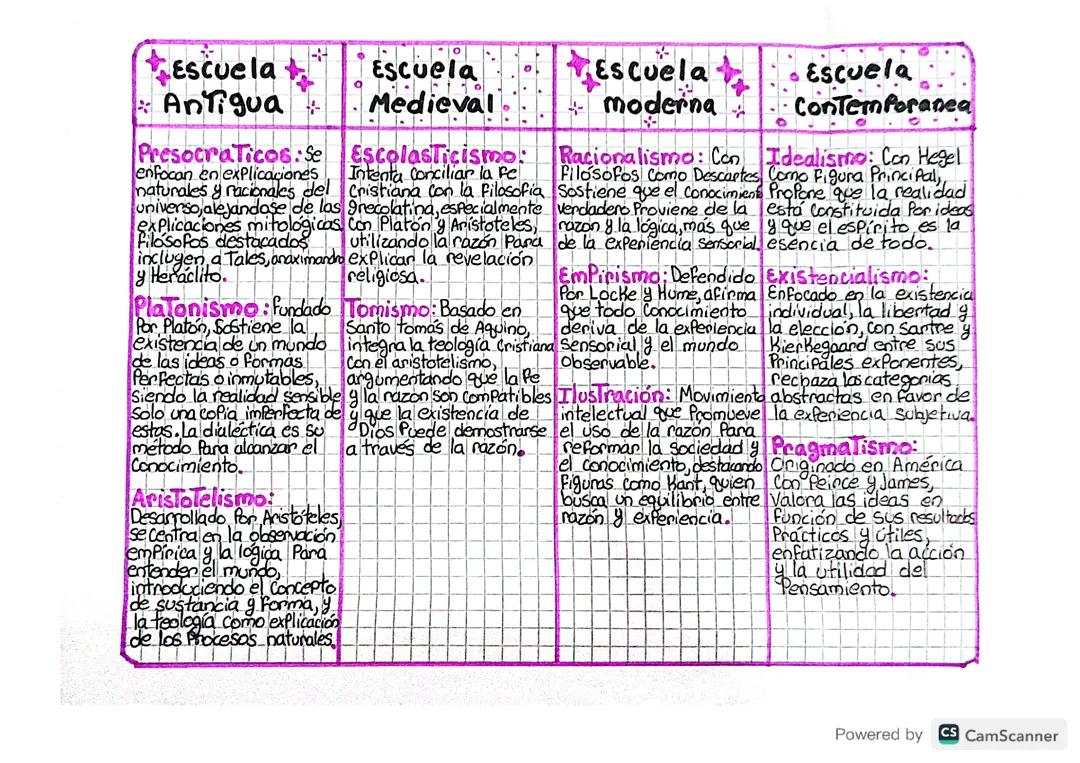 Escuela
Antigua
Presocraticos: Se
enfocan en explicaciones
naturales y racionales del
universo, alejandose de las
explicaciones mitológicas.
Filósofos destacados
incluyen, a Tales, anaximandro
y Heráclito.
Platonismo: Fundado
Por Platón, Sostiene la
existencia de un mundo
de las ideas o formas
Perfectas o inmutables,
siendo la realidad sensible
solo una copia imperfecta de
estas. La dialéctica es su
método Para alcanzar el
Conocimiento.
Aristotelismo:
Desarrollado Por Aristóteles,
se centra en la observación
empírica y la lógica Para
entender el mundo,
introduciendo el Concepto
de sustancia y Forma, y
la teología como explicación
de los Procesos naturales.
Escuela
Medieval
Escolasticismo:
Intenta Conciliar la Fe
Cristiana con la Filosofía
grecolatina, especialmente
Con Platón y Aristóteles,
utilizando la razón Para
explicar la revelación
religiosa.
Tomismo: Basado en
Santo tomás de Aquino,
integra la teología Cristiana
Con el aristotelismo,
argumentando que la Fe
y la razón son Compatibles
y que la existencia de
Dios Puede demostrarse
a través de la razón.
Escuela
moderna
Racionalismo: Con
Filósofos Como Descartes,
Sostiene que el conocimiento
verdadero Proviene de la
razón y la lógica, más que
de la experiencia sensorial.
EmPirismo: Defendido
Por Locke y Hume, afirma
que todo Conocimiento
deriva de la experiencia
sensorial y el mundo
Observable.
Ilustración: Movimiento
intelectual que Promueve
el uso de la razón Para
reformar la sociedad y
el conocimiento, destacando
Figuras como Kant, quien
busca un equilibrio entre
razón y experiencia.
Escuela
Contemporanea
Idealismo: Con Hegel
Como Figura Principal,
Propone que la realidad
está Constituida Por ideas
y que el espíritu es la
esencia de todo.
Existencialismo:
Enfocado en la existencia
individual, la libertad y
la elección, con Sartre y
Kierkegaard entre sus
Principales exponentes,
rechaza las categorías
abstractas en favor de
la experiencia subjetiva.
Pragmatismo:
Originado en América
Con Peirce y James,
Valora las ideas en
Función de sus resultados
Prácticos y útiles,
enfatizando la acción
y la utilidad del
Pensamiento.
Powered by CS CamScanner